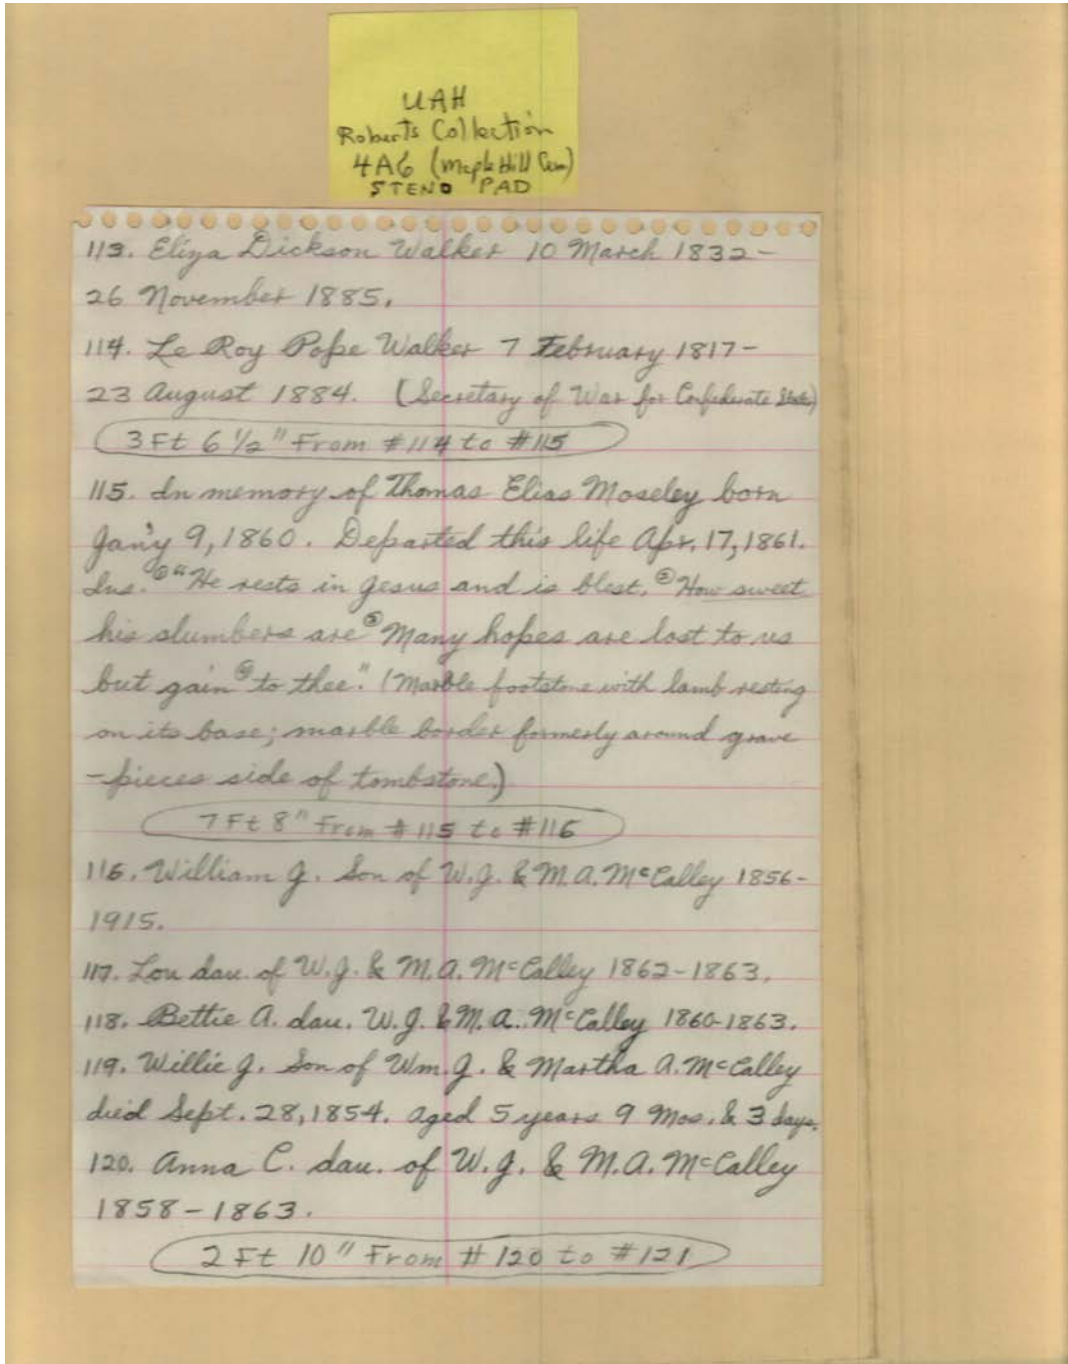 UAH
Roberts Collection
4A6 (Maple Hill Cem)
STENO PAD
113. Eliza Dickson Walker 10 March 1832-
26 November 1885.
114. Le Roy Pope Walker 7 February 1817-
23 August 1884. (Secretary of War for Confederate States)
3 Ft 6 1/2" From #114 to #115
115. In memory of Thomas Elias Moseley born
Jan'y 9, 1860. Departed this life Apr. 17, 1861.
Ins. ①"He rests in Jesus and is blest. ②How sweet
his slumbers are ③Many hopes are lost to us
but gain ④to thee." (Marble footstone with lamb resting
on its base; marble border formerly around grave
-pieces side of tombstone.)
7 Ft 8" From #115 to #116
116. William J. Son of W.J. & M.A. McCalley 1856-
1915.
117. Lou dau. of W.J. & M.A. McCalley 1862-1863.
118. Bettie A. dau. W.J. & M.A. McCalley 1860-1863.
119. Willie J. Son of Wm. J. & Martha A. McCalley
died Sept. 28, 1854. aged 5 years 9 Mos. & 3 days.
120. Anna C. dau. of W.J. & M.A. McCalley
1858-1863.
2 Ft 10" From #120 to #121